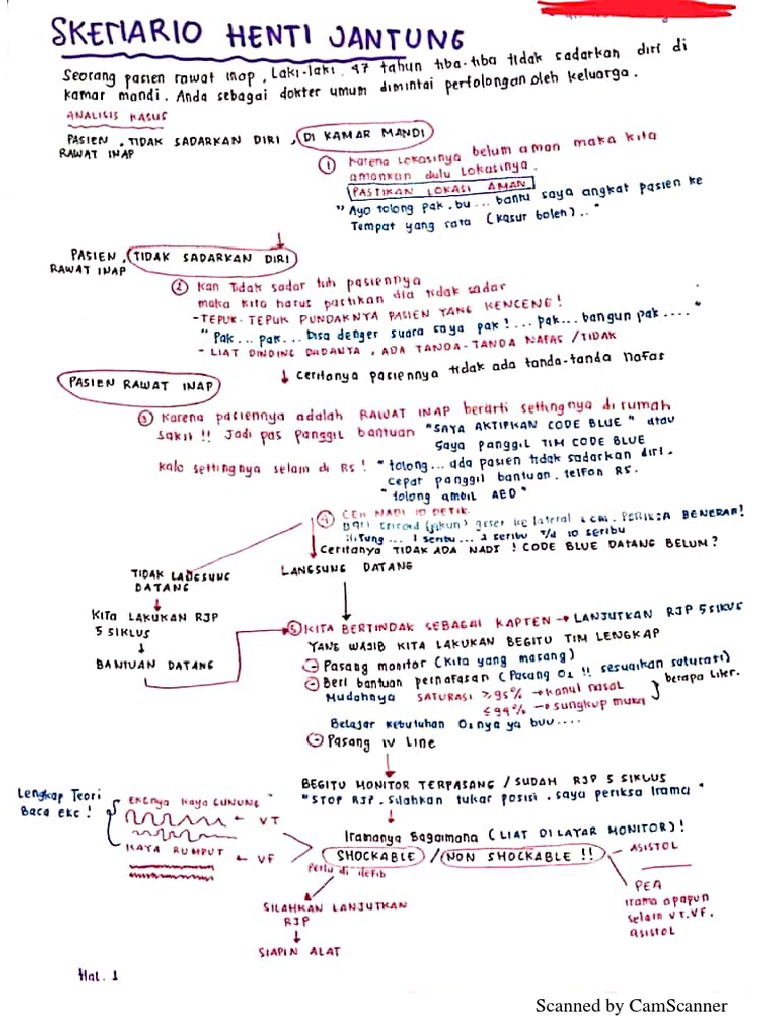 SKENARIO HENTI JANTUNG
Seorang pasien rawat inap, Laki-laki. 47 tahun tiba-tiba tidak sadarkan diri di
kamar mandi. Anda sebagai dokter umum dimintai pertolongan oleh keluarga.
ANALISIS KASUS
PASIEN, TIDAK SADARKAN DIRI, DI KAMAR MANDI
RAWAT INAP
① Karena Lokasinya belum aman maka kita
amankan dulu Lokasinya.
PASTIKAN LOKASI AMAN
"Ayo tolong pak, bu... bantu saya angkat pasien ke
Tempat yang rata (kasur boleh).."
PASIEN, TIDAK SADARKAN DIRI
RAWAT INAP
② Kan Tidak sadar tuh pasiennya
maka kita harus pastikan dia tidak sadar
- TEPUK-TEPUK PUNDAKNYA PASIEN YANG KENCENG!
"Pak... pak... bisa denger suara saya pak!... pak... bangun pak...."
- LIAT DINDING DADANYA, ADA TANDA-TANDA NAFAS/TIDAK
↓ Ceritanya pasiennya tidak ada tanda-tanda Nafas
PASIEN RAWAT INAP
③ Karena pasiennya adalah RAWAT INAP berarti settingnya di rumah
sakit!! Jadi pas panggil bantuan "SAYA AKTIFKAN CODE BLUE" atau
Saya panggil TIM CODE BLUE
Kalo settingnya selain di RS! "tolong... ada pasien tidak sadarkan diri.
cepat panggil bantuan. telfon RS.
"tolong ambil AED"
④ CEK NADI 10 DETIK.
Dari cricoid (jakun) geser ke lateral 2 cm. PERIKSA BENERAN!
Hitung... 1 seribu... 2 seribu s/d 10 seribu
Ceritanya TIDAK ADA NADI! CODE BLUE DATANG BELUM?
TIDAK LANGSUNG
DATANG
LANGSUNG DATANG
KITA LAKUKAN RJP
5 SIKLUS
BANTUAN DATANG
⑤ KITA BERTINDAK SEBAGAI KAPTEN → LANJUTKAN RJP 5 SIKLUS
YANG WAJIB KITA LAKUKAN BEGITU TIM LENGKAP
- Pasang monitor (Kita yang masang)
- Beri bantuan pernafasan (Pasang O2!! sesuaikan saturasi)
Mudahnya SATURASI ≥95% → kanul nasal
≤94% → sungkup muka
berapa liter.
Belajar kebutuhan O2nya ya buu....
- Pasang IV Line
BEGITU MONITOR TERPASANG / SUDAH RJP 5 SIKLUS
"STOP RJP. Silahkan tukar posisi. saya periksa Irama"
Lengkap Teori
Baca EKG!
EKGnya kaya GUNUNG"
← VT
KAYA RUMPUT ← VF
Iramanya Bagaimana (LIAT DI LAYAR MONITOR)!
SHOCKABLE / NON SHOCKABLE!!
Perlu di defib
ASISTOL
PEA
irama apapun
selain VT. VF.
asistol
SILAHKAN LANJUTKAN
RJP
SIAPIN ALAT
Hal. 1
Scanned by CamScanner